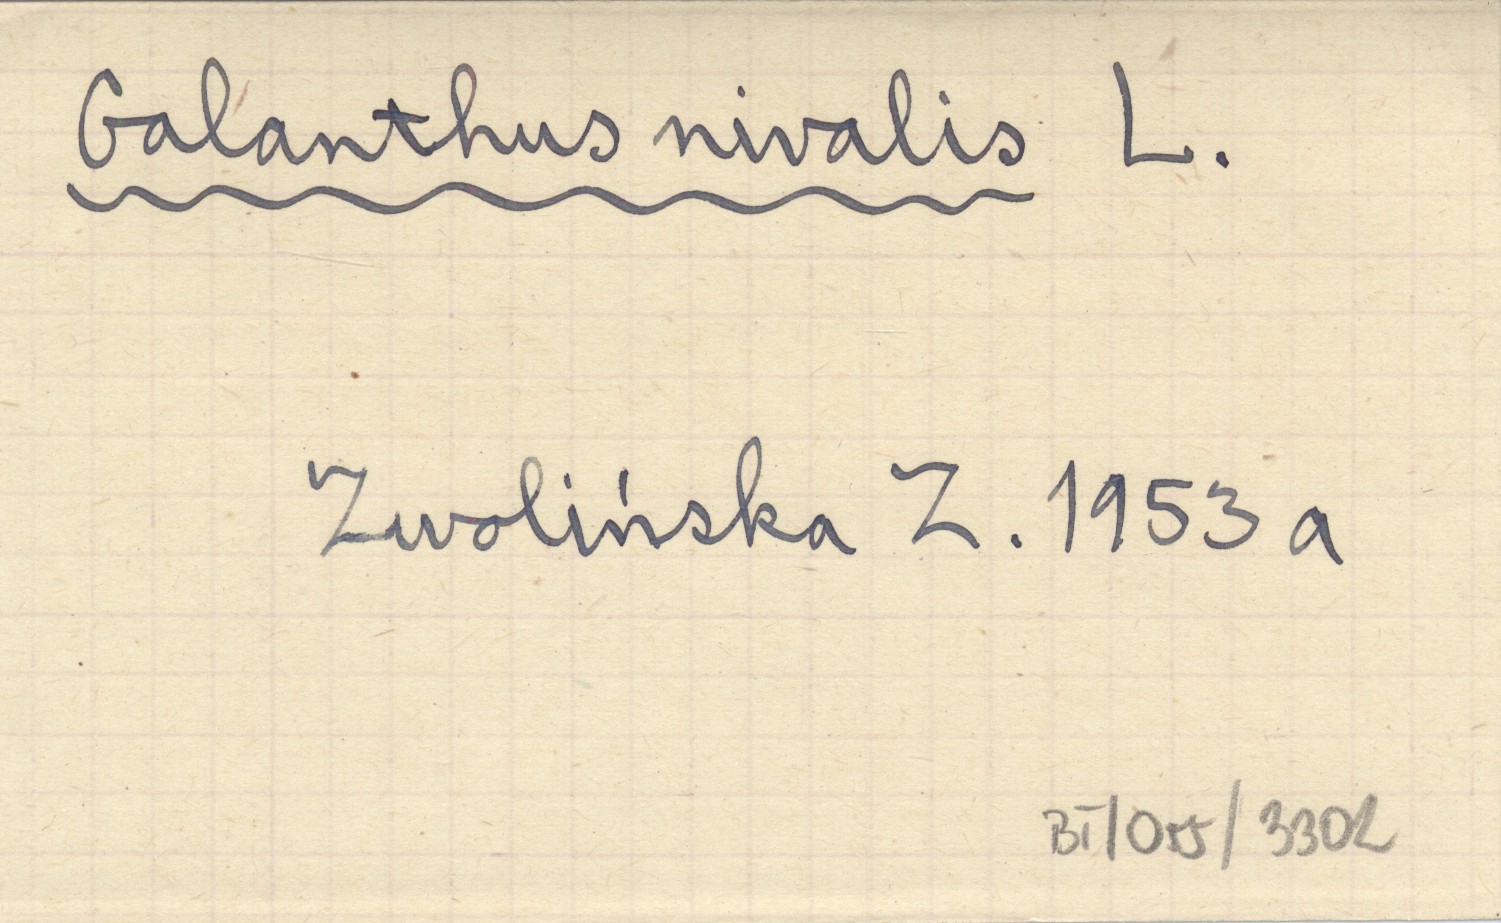 Galanthus nivalis L.
Zwolińska Z. 1953 a
BI/055/3302